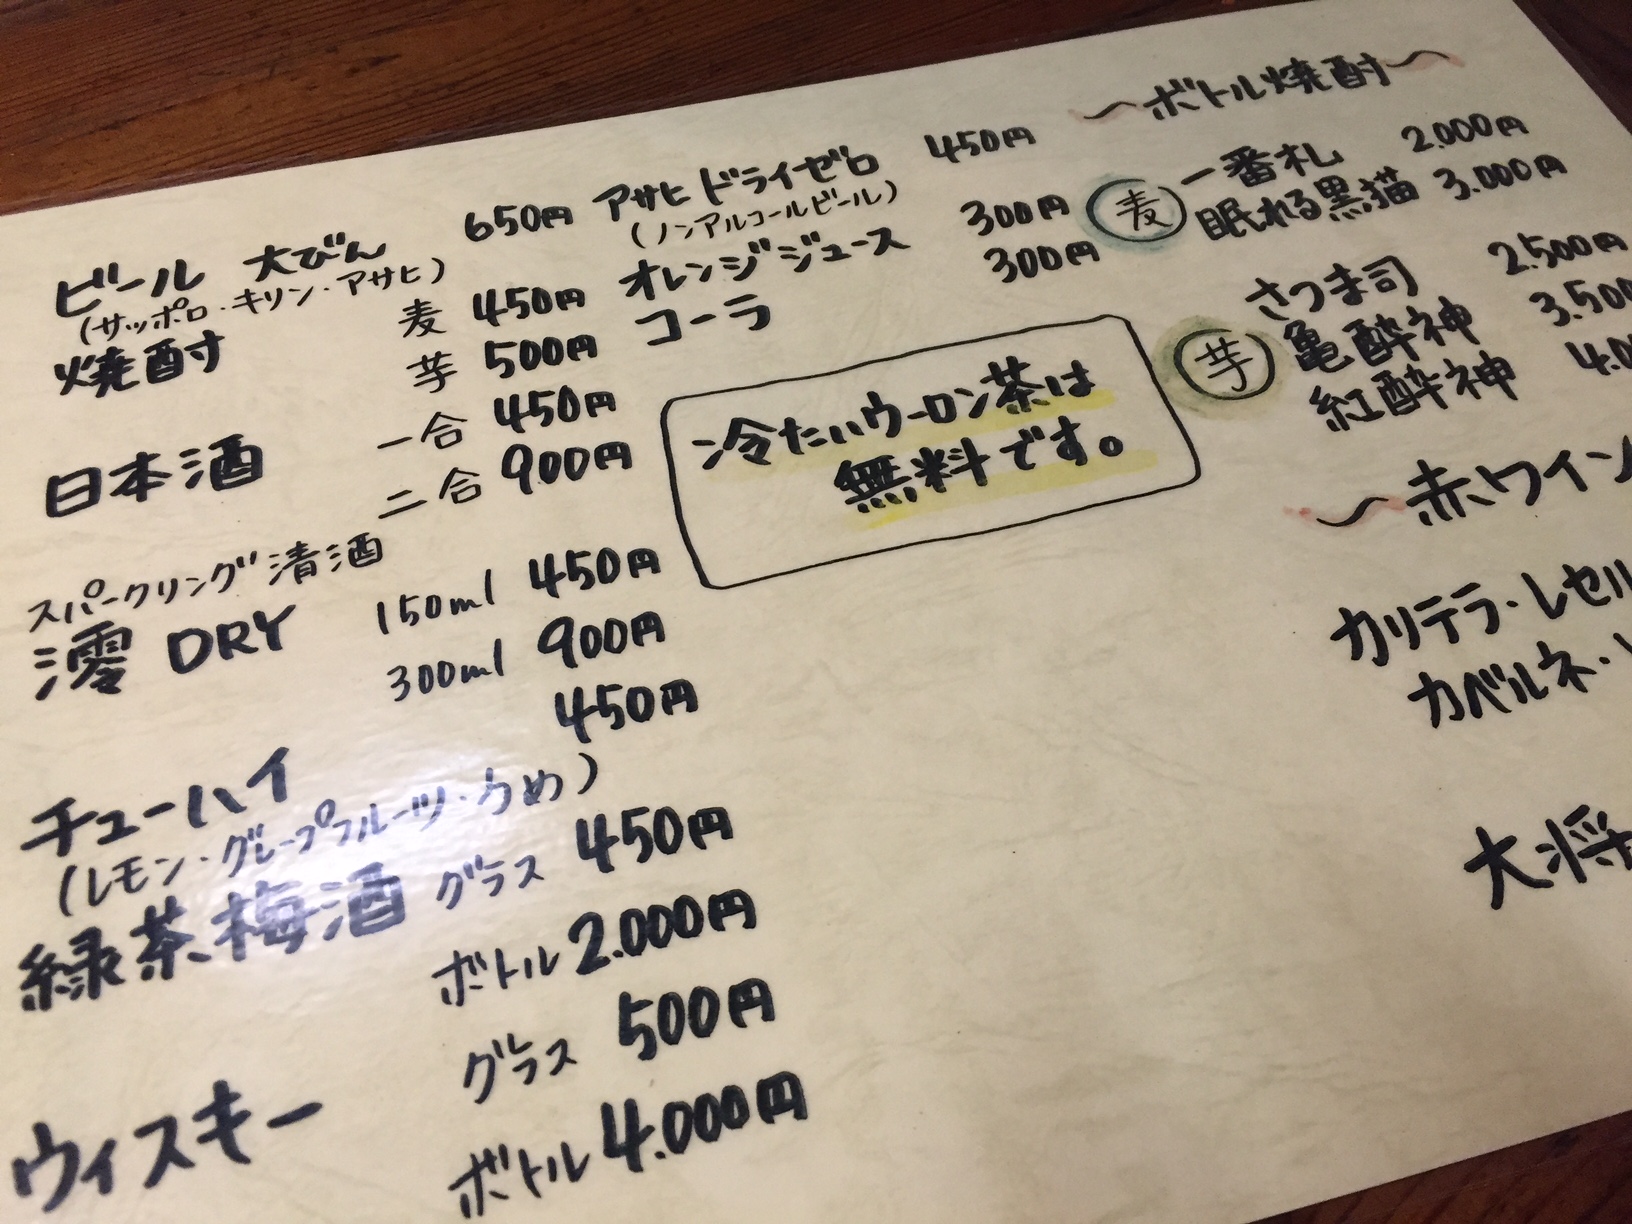 ビール 大びん 650円
(サッポロ・キリン・アサヒ)
焼酎 麦 450円
芋 500円
日本酒 一合 450円
二合 900円
スパークリング清酒
澪 DRY 150ml 450円
300ml 900円
チューハイ 450円
(レモン・グレープフルーツ・うめ)
緑茶梅酒 グラス 450円
ボトル 2.000円
ウィスキー グラス 500円
ボトル 4.000円
アサヒ ドライゼロ 450円
(ノンアルコールビール)
オレンジジュース 300円
コーラ 300円
冷たいウーロン茶は
無料です。
〜ボトル焼酎〜
麦 一番札 2.000円
眠れる黒猫 3.000円
芋 さつま司 2.500円
亀酔神 3.500
紅酔神 4.0
〜赤ワイン
カリテラ・レセル
カベルネ・
大将